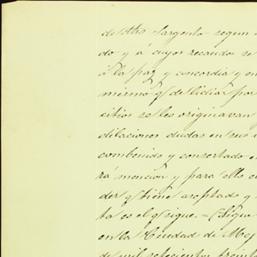 de dho Sargento segun
do y á cuyos recaudos se
á la paz y concordia y en
mismo q. de lidiar por
sitios se les originavan
dilaciones dudas en sus
combenido y consertado
ra mencion y para ello
der q. tiene aceptado y
ba es el q. sigue = Sigue
en la Ciudad de Mex
de mil setecientos treinta